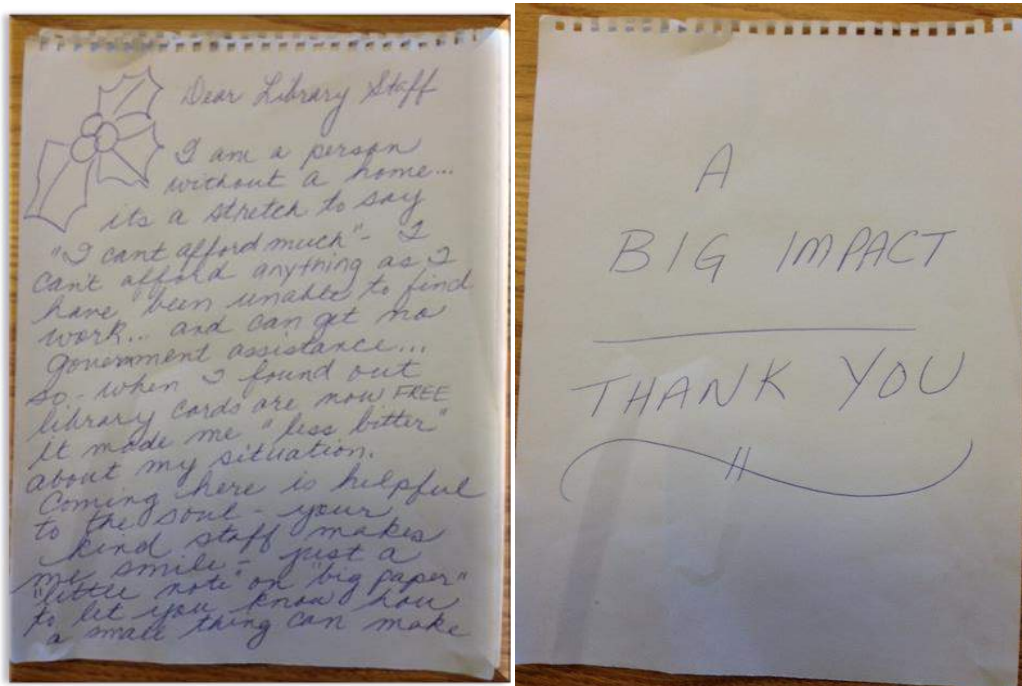 Dear Library Staff
I am a person
without a home...
its a stretch to say
"I cant afford much" - I
can't afford anything as I
have been unable to find
work... and can get no
government assistance...
so - when I found out
library cards are now FREE
it made me "less bitter"
about my situation.
Coming here is helpful
to the soul - your
kind staff makes
me smile - just a
"little note" on "big paper"
to let you know how
a small thing can make
A
BIG IMPACT
THANK YOU